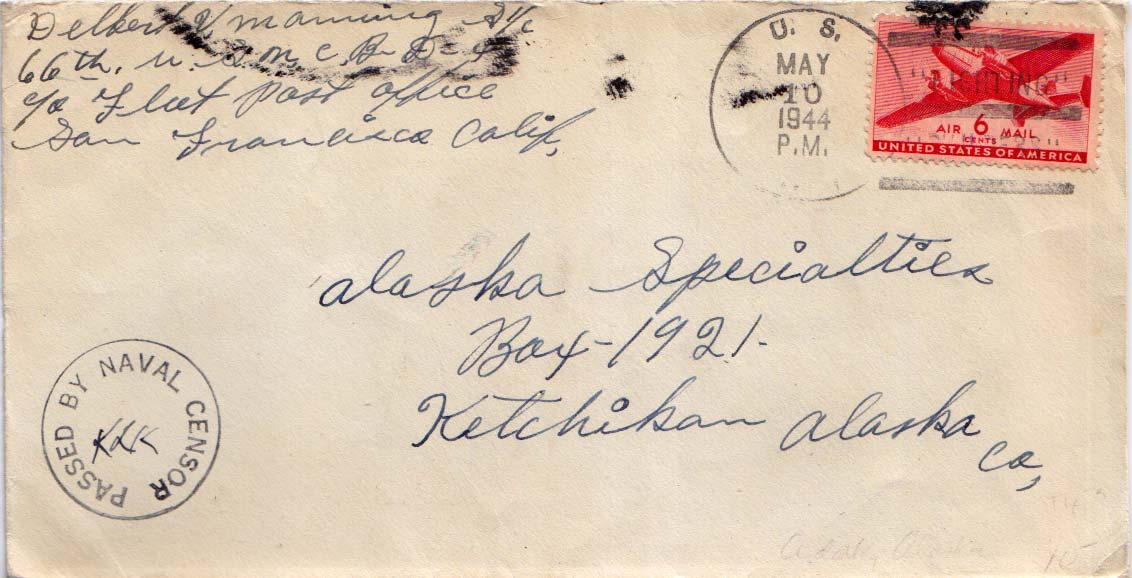 Delbert V. Manning S1/c
66th. U.S.N.C.B. D-4
c/o Fleet Post Office
San Francisco Calif,
U. S.
MAY
10
1944
P.M.
AIR 6 MAIL
CENTS
UNITED STATES OF AMERICA
Alaska Specialties
Box-1921-
Ketchikan Alaska
Co,
PASSED BY NAVAL CENSOR
KLK
Adak, Alaska